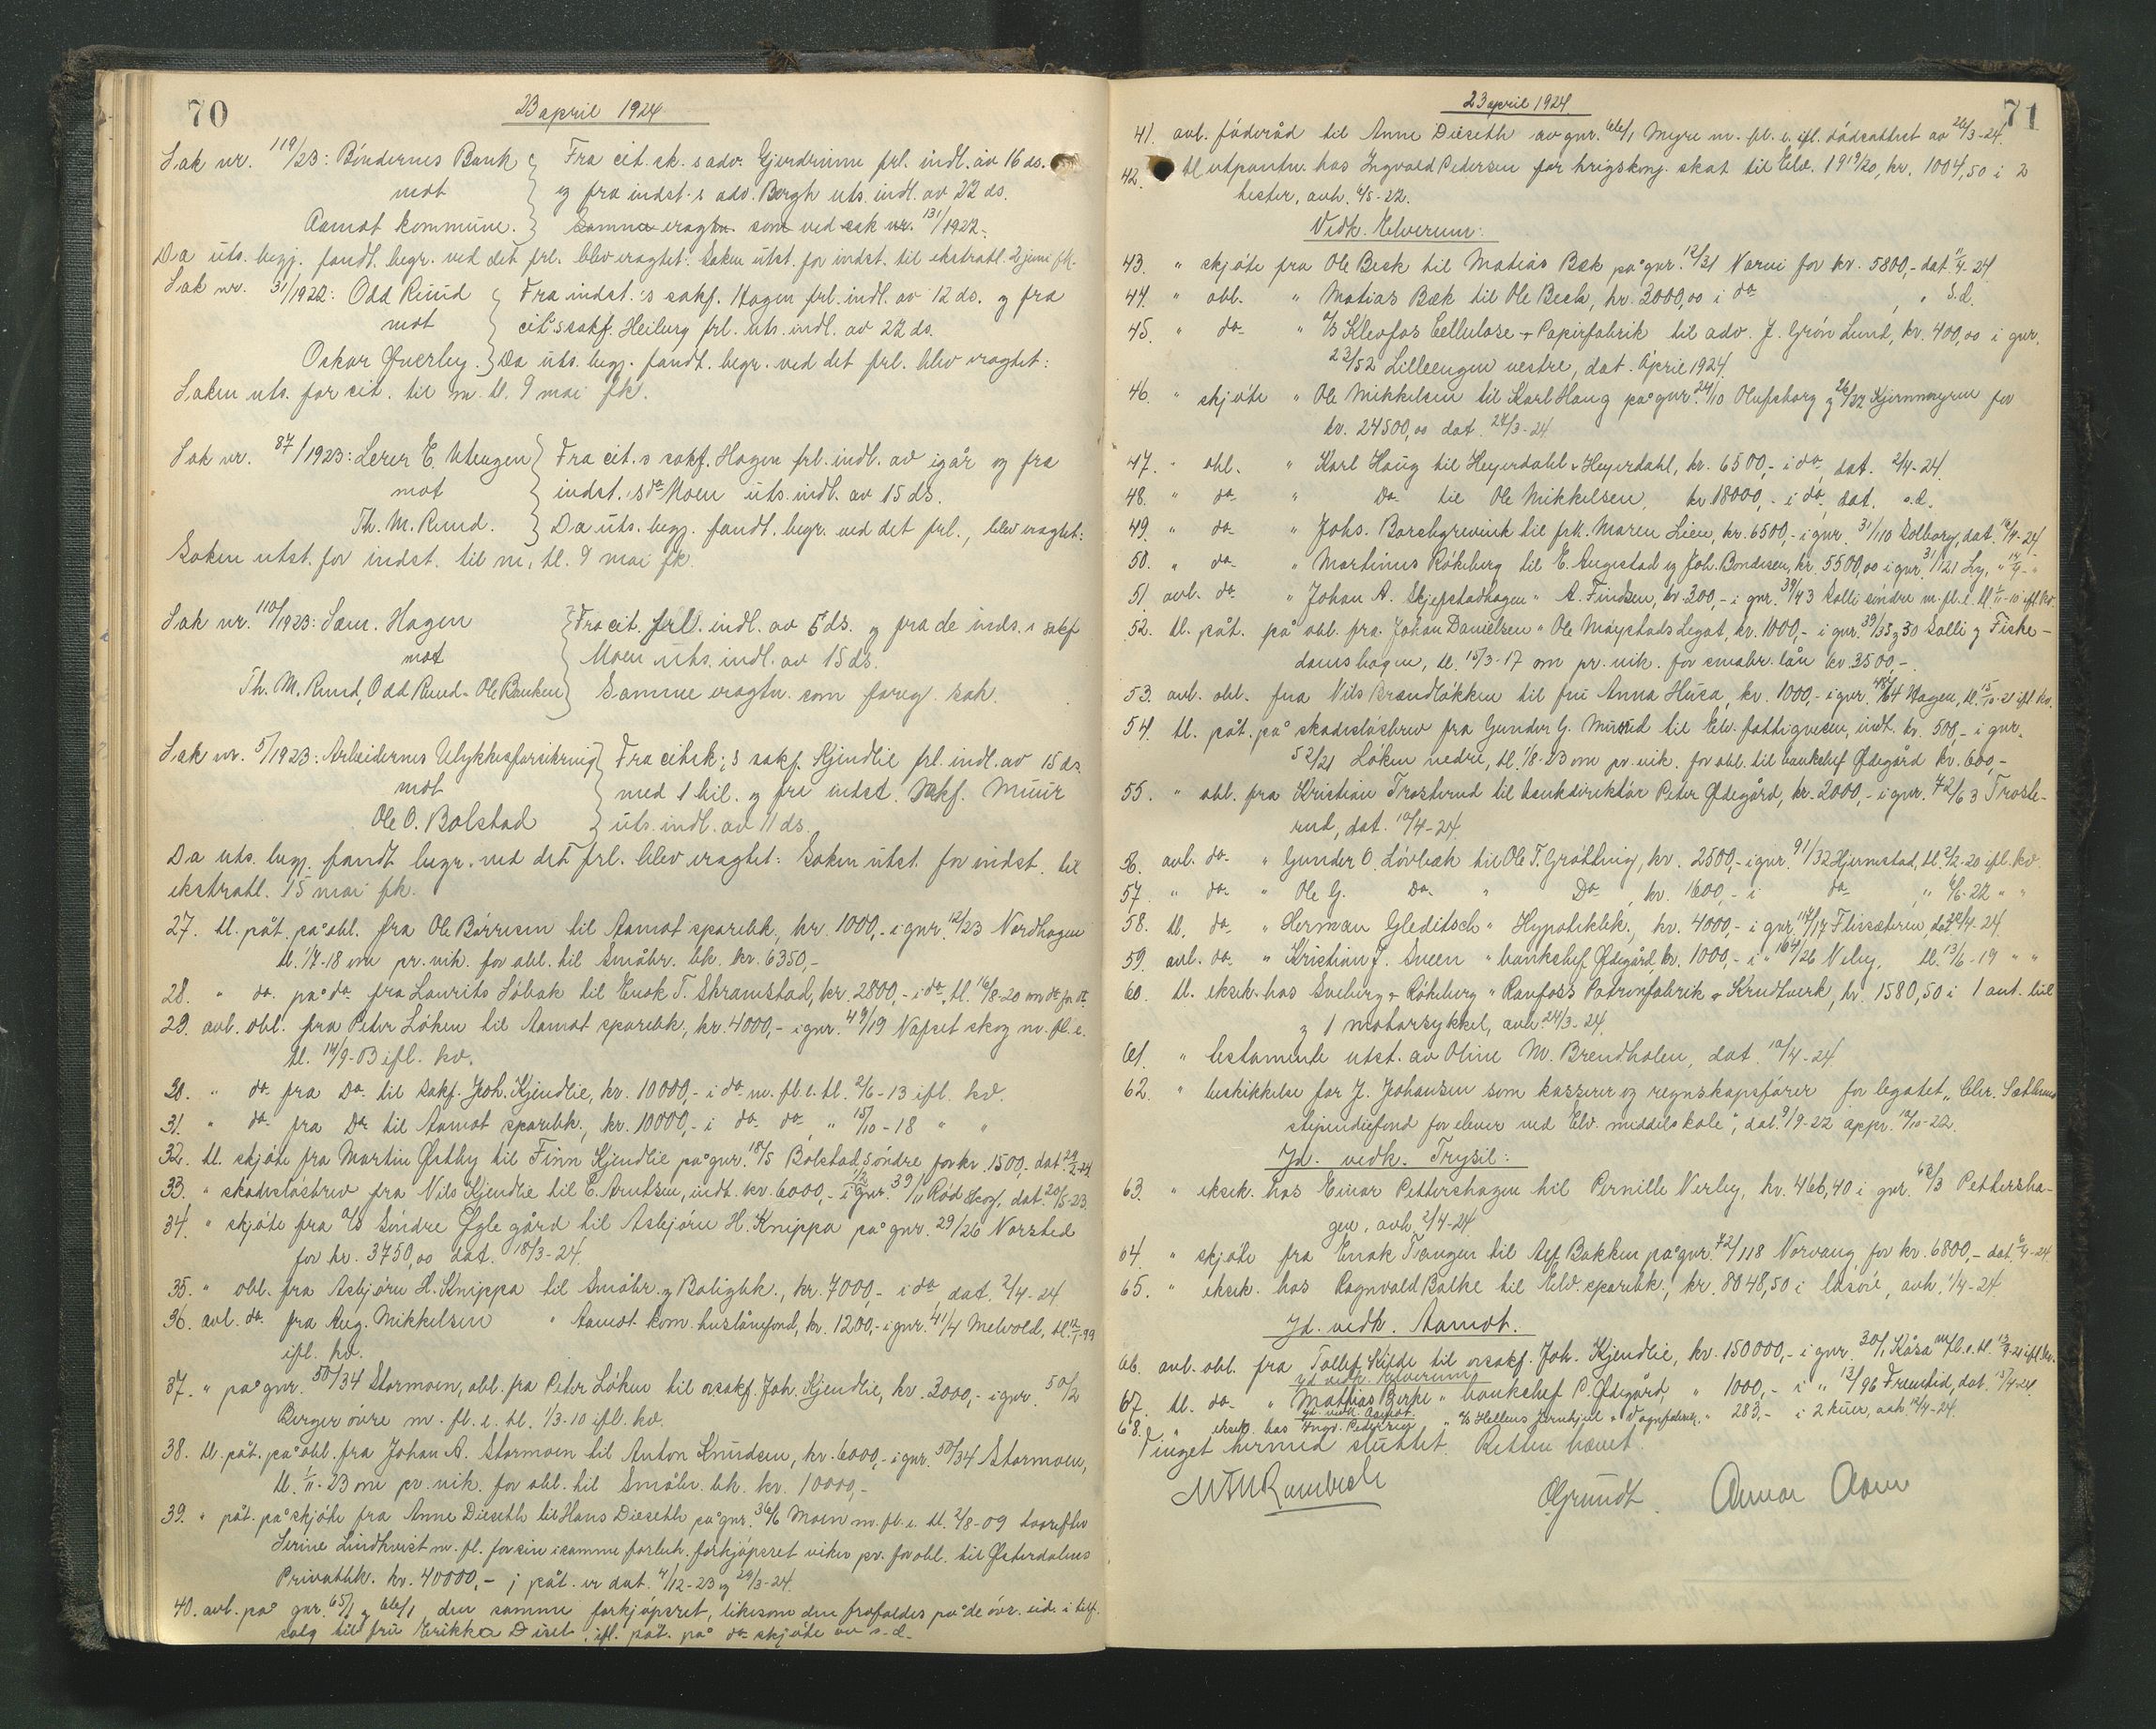 70
23 april 1924
Sak nr. 119/23: Böndernes Bank } Fra cit. sk. s adv. Gjerdrum frl. indl. av 16 ds.
mot } og fra indst. s adv. Bergh uts. indl. av 22 ds.
Aamot kommune. } Samme eragtn. som ved sak nr. 131/1922.
Da uts. begj. fandt. begr. ved det frl. blev eragtet: Saken utst. for indst. til ekstratl. 2 juni fk.
Sak nr. 31/1922: Odd Ruud { Fra indst.'s sakf. Hagen frl. indl. av 12 ds. og fra
mot { cit's sakf. Heiberg frl. uts. indl. av 22 ds.
Oskar Øverby. } Da uts. begj. fandt. begr. ved det frl. blev eragtet:
Saken uts. for cit. til m. tl. 9 mai fk.
Sak nr. 87/1923: Lerer E. Utengen } Fra cit.s sakf. Hagen frl. indl. av igår og fra
mot { indst. s do Moen uts. indl. av 15 ds.
Th. M. Ruud. } Da uts. begj. fandt. begr. ved det frl., blev eragtet:
Saken utst. for indst. til m. tl. 9 mai fk.
Sak nr. 110/1923: Sam. Hagen } Fra cit. frl. indl. av 5 ds. og fra de inds. s sakf
mot } Moen uts. indl. av 15 ds.
Th. M. Ruud, Odd Ruud - Ole Bakken } Samme eragtn. som foreg. sak.
Sak nr. 5/1923: Arbeidernes Ulykkesforsikring } Fra cit sk; s sakf. Kjendlie frl. indl. av 15 ds.
mot } med 1 bil. og fra indst. sakf. Muur
Ole O. Bolstad } uts. indl. av 11 ds.
Da uts. begj. fandt begr. ved det frl. blev eragtet: Saken utst. for indst. til
ekstratl. 15 mai fk.
27. tl. påt. på obl. fra Ole Börresen til Aamot sparebk., kr. 1000,- i gnr. 12/23 Nordhagen
tl. 1/7-18 om pr. vik. for obl. til Småbr. bk. kr. 6350,-
28. " do. på do. fra Laurits Löbak til Enok T. Skramstad, kr. 2800,- i do, tl. 16/8-20 om do pr. vk.
29. avl. obl. fra Peter Löken til Aamot sparebk, kr. 4000,- i gnr. 49/19 Nafset skog m. fl. e.
tl. 14/9-03 ifl. kv.
30. " do. fra Do. til sakf. Joh. Kjendlie, kr. 10000,- i do. m. fl. e. tl. 2/6-13 ifl. kv.
31. " do. fra Do. til Aamot sparebk., kr. 10000,- i do. do. " 15/10-18 " "
32. tl. skjöte fra Martin Østby til Finn Kjendlie på gnr. 18/5 Bolstad söndre for kr. 1500,- dat. 29/2-24
33. " skadeslösbrev fra Nils Kjendlie til E. Arntsen, indt. kr. 6000,- i 1/2 gnr. 39/11 Rød skog, dat. 20/5-23.
34. " skjöte fra a/s Söndre Øgle gård til Asbjörn H. Knippa på gnr. 29/26 Norsted
for kr. 3750,00 dat. 18/3-24.
35. " obl. fra Asbjörn H. Knippa til Småbr. og Boligbk., kr. 7000,- i do dat. 2/4-24
36. avl. do. fra Aug. Mikkelsen " Aamot kom. huslånefond, kr. 1200,- i gnr. 41/4 Melvold, tl. 12/1-99
ifl. kv.
37. " på gnr. 50/34 Stormoen, obl. fra Peter Löken til o.sakf. Joh. Kjendlie, kr. 3000,- i gnr. 50/2
Berger övre m. fl. e. tl. 1/3-10 ifl. kv.
38. tl. påt. på obl. fra Johan A. Stormoen til Anton Knudsen, kr. 6000,- i gnr. 50/34 Stormoen,
tl. 1/11-23 om pr. vik. for obl. til Småbr. bk. kr. 10000,-
39. " påt. på skjöte fra Anne Dieseth til Hans Dieseth på gnr. 36/6 Moen m. fl. e. tl. 2/8-09 hvorefter
Serine Lindkvist m. fl. for sin i samme forbeh. forkjöpsret viker pr. for obl. til Østerdalens
Privatbk. kr. 40000,- ; påt. er dat. 4/12-23 og 29/3-24.
40. avl. på gnr. 65/1 og 66/1 den samme forkjöpsret, likesom den frafaldes på de övr. eid. i tilf.
salg til fru Erikka Diset, ifl. påt. på do. skjöte av s. d.
71
23 april 1924.
41. avl. föderåd til Anne Dieseth av gnr. 66/1 Myre m. fl. e. ifl. dödsattest av 26/3-24.
42. tl. utpantn. hos Ingvald Pedersen for krigskonj. skat til Elv. 1919/20, kr. 1004,50 i 2
hester, avh. 4/5-22.
Vedk. Elverum:
43. " skjöte fra Ole Beck til Matias Bæk på gnr. 12/31 Narvi for kr. 5800,- dat. 11/4-24
44. " obl. " Matias Bæk til Ole Beck, kr. 3000,00 i do " s.d.
45. " do. " a/s Klevfos Cellulose & Papirfabrik til adv. J. Grön Lund, kr. 400,00 i gnr.
23/52 Lilleengen vestre, dat. April 1924
46. " skjöte " Ole Mikkelsen til Karl Haug på gnr. 24/10 Olufsborg og 26/32 Kjernmyren for
kr. 24500,00 dat. 28/3-24
47. " obl. " Karl Haug til Heyerdahl & Heyerdahl, kr. 6500,- i do, dat. 2/4-24.
48. " do. " Do til Ole Mikkelsen, kr. 18000,- i do, dat. s.d.
49. " do. " Johs. Borchgrevink til frk. Maren Lien, kr. 6500,- i gnr. 31/110 Solborg, dat. 14/4-24
50. " do. " Martinus Rökeberg til E. Augestad og Joh. Bondesen, kr. 5500,00 i gnr. 31/121 Ly, " 14/4-"
51. avl. do " Johan A. Skjefstadhagen " A. Findsen, kr. 300,- i gnr. 39/43 Solli söndre m. fl. e. tl. 1/11-10 ifl. kv.
52. tl. påt. på obl. fra Johan Danielsen " Ole Möystads Legat, kr. 1000,- i gnr. 39/35 og 30 Solli og Fiske-
damshagen, tl. 15/3-17 om pr. vik. for småbr. lån kr. 3500,-
53. avl. obl. fra Nils Brændlökken til fru Anna Husa, kr. 1000,- i gnr. /64 Hagen, tl. 15/10-21 ifl. kv.
54. tl. påt. på skadeslösbrev fra Gunder G. Murud til Elv. fattigvesen, indt. kr. 500,- i gnr.
52/21 Löken nedre, tl. 1/8-23 om pr. vik. for obl. til banksjef Ødegård kr. 600,-
55. " obl. fra Kristian Trosterud til bankdirektör Peter Ødegård, kr. 2000,- i gnr. 72/63 Troste-
rud, dat. 10/4-24.
56. avl. do. " Gunder O. Lövbæk til Ole T. Gröttting, kr. 2500,- i gnr. 91/32 Hjernstad, tl. 2/2-20 ifl. kv.
57. " do. " Ole G. Do. " Do, kr. 1600,- i do. " 6/6-22 " "
58. tl. do. " Herman Gleditsch " Hypotekbk., kr. 4000,- i gnr. 117/17 Flisæteren, dat. 2/4-24.
59. avl. do. " Kristian J. Sveen " banksjef Ødegård, kr. 1000,- i " 164/26 Neby, tl. 13/6-19 " "
60. tl. eksek. hos Sveberg & Rökeberg " Raufoss Patronfabrik & Krudtverk, kr. 1580,50 i 1 aut. bil
og 1 motorsykkel, avh. 24/3-24.
61. " testamente utst. av Oline M. Brendholen, dat. 10/4-24
62. " beskikkelse for J. Johansen som kasserer og regnskapsförer for legatet, "Chr. Sæthrens
stipendiefond for elever ved Elv. middelskole", dat. 9/9-22 appr. 12/10-22.
Yd. vedk. Trysil:
63. " eksek. hos Einar Pettershagen til Pernille Nerby, kr. 466,40 i gnr. 63/3 Pettersha-
gen, avh. 2/4-24.
64. " skjöte fra Enok Tangen til Alf Bakken på gnr. 72/118 Norvang, for kr. 6800,- dat. 5/4-24
65. " eksek. hos Ragnvald Balke til Elv. sparebk., kr. 8048,50 i lösöre, avh. 1/4-24
Yd. vedk. Aamot.
66. avl. obl. fra Tollef Kilde til o.sakf. Joh. Kjendlie, kr. 150000,- i gnr. 30/1 Kåsa m fl. e. tl. 13/9-21 ifl. kv.
yd vedk. Elverum
67. tl. do. " Mathias Berke " banksjef P. Ødegård, " 1000,- i " 13/96 Fremtid, dat. 15/4-24.
yd. vedk. Aamot.
68. " eksek. hos Ingv. Pedersen " a/s Hellens Jernhjul & Vognfabrik, " 283,- i 2 kuer, avh. 14/4-24.
Tinget hermed sluttet. Retten hævet.
OGrundt. Amar Aam